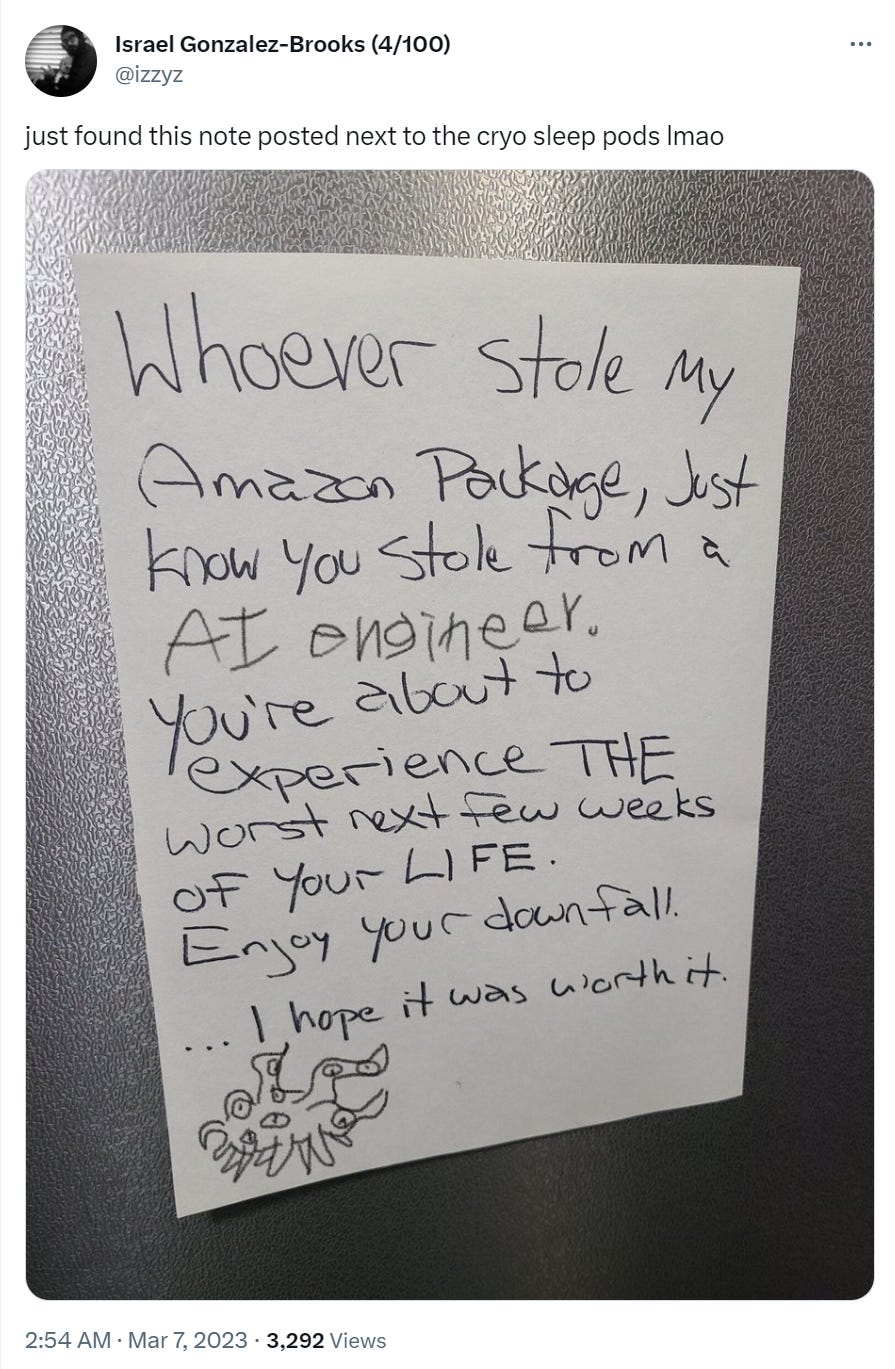 Israel Gonzalez-Brooks (4/100)
@izzyz
just found this note posted next to the cryo sleep pods lmao
Whoever stole my
Amazon Package, Just
know you stole from a
AI engineer.
You're about to
experience THE
worst next few weeks
of your LIFE.
Enjoy your downfall.
... I hope it was worth it.
2:54 AM · Mar 7, 2023 · 3,292 Views